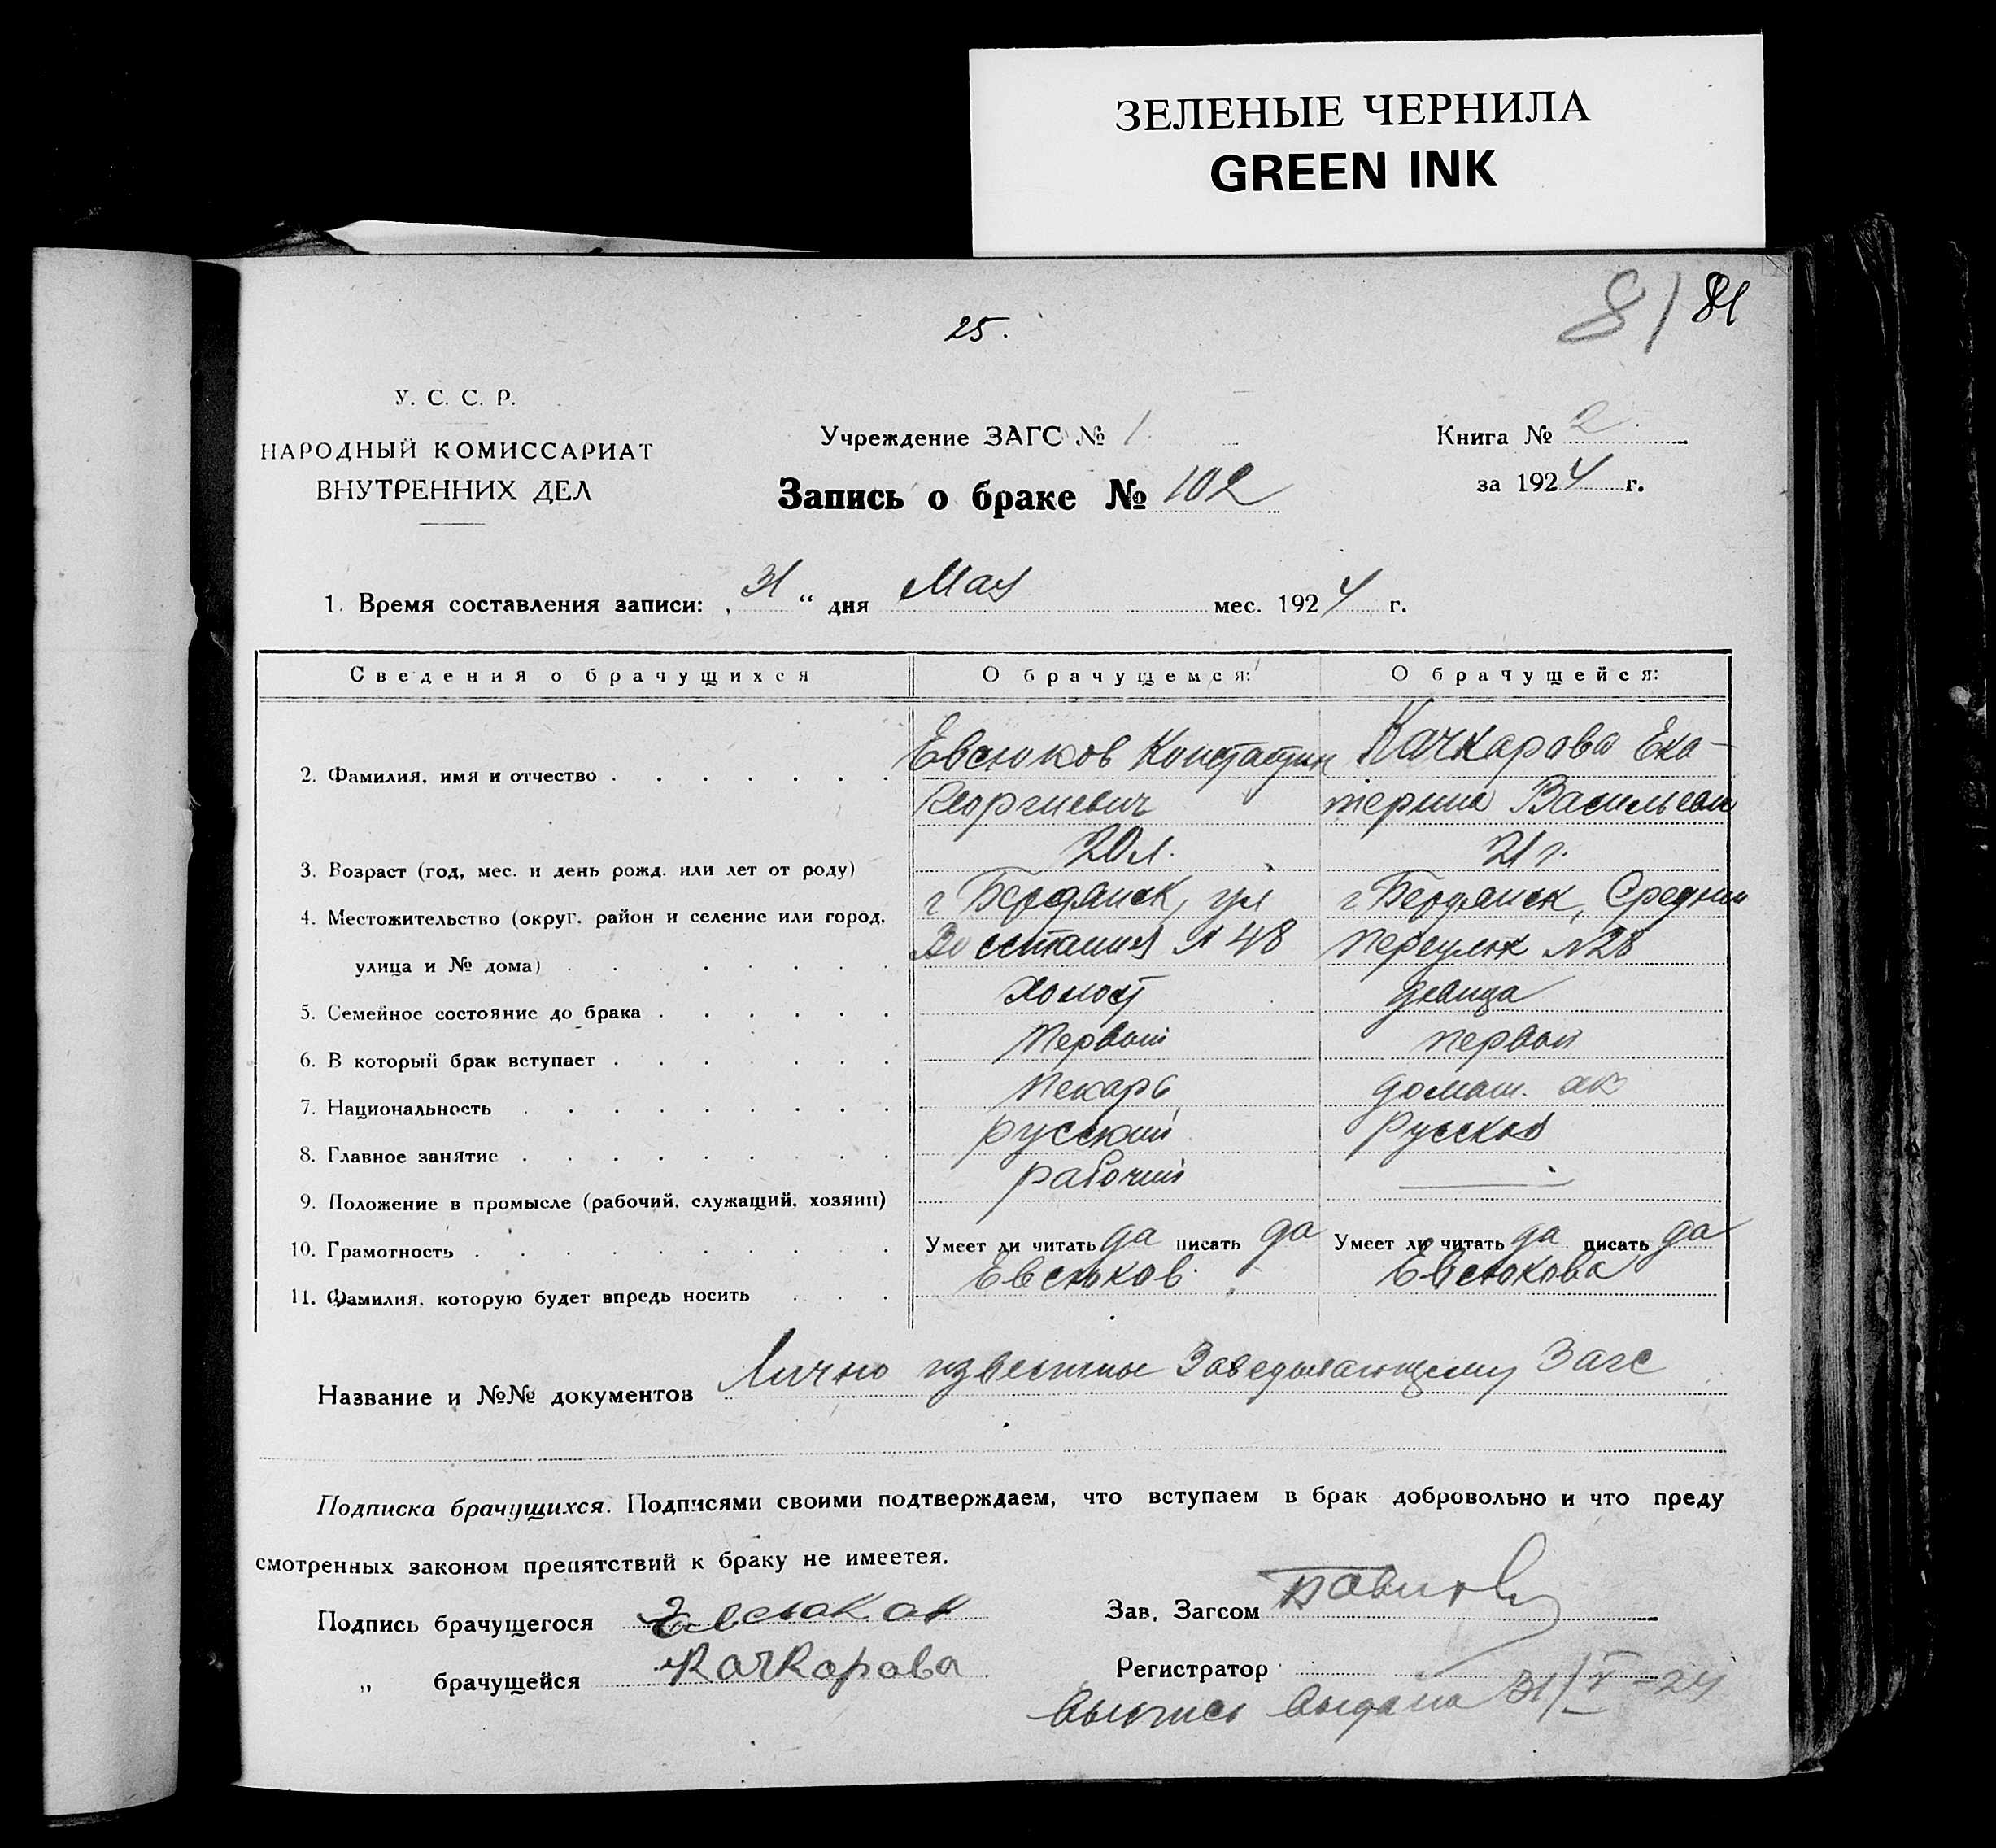 ЗЕЛЕНЫЕ ЧЕРНИЛА
GREEN INK
81 81
25.
У. С. С. Р.
НАРОДНЫЙ КОМИССАРИАТ
ВНУТРЕННИХ ДЕЛ
Учреждение ЗАГС № 1.
Книга № 2.
Запись о браке № 102
за 1924 г.
1. Время составления записи: „31“ дня Мая мес. 1924 г.
Сведения о брачущихся О брачущемся: О брачущейся:
2. Фамилия, имя и отчество Евсюков Констатин Качкарова Ека-
Георгиевич терина Васильевн
3. Возраст (год, мес. и день рожд. или лет от роду) 20 л. 21 г.
4. Местожительство (округ, район и селение или город, г Бердянск, ул г Бердянск, Средний
улица и № дома) Восстания № 48 переулок № 28
5. Семейное состояние до брака холост девица
6. В который брак вступает первый первый
7. Национальность пекарь домаш. хоз
8. Главное занятие русский Русская
9. Положение в промысле (рабочий, служащий, хозяин) рабочий —
10. Грамотность Умеет ли читать да писать да Умеет ли читать да писать да
11. Фамилия, которую будет впредь носить Евсюков Евсюкова
Название и №№ документов Лично известны Заведывающему Загс
Подписка брачущихся. Подписями своими подтверждаем, что вступаем в брак добровольно и что преду
смотренных законом препятствий к браку не имеетея.
Подпись брачущегося Евсюков Зав. Загсом
„ брачущейся Качкарова Регистратор
Выпись выдана 31/V-24